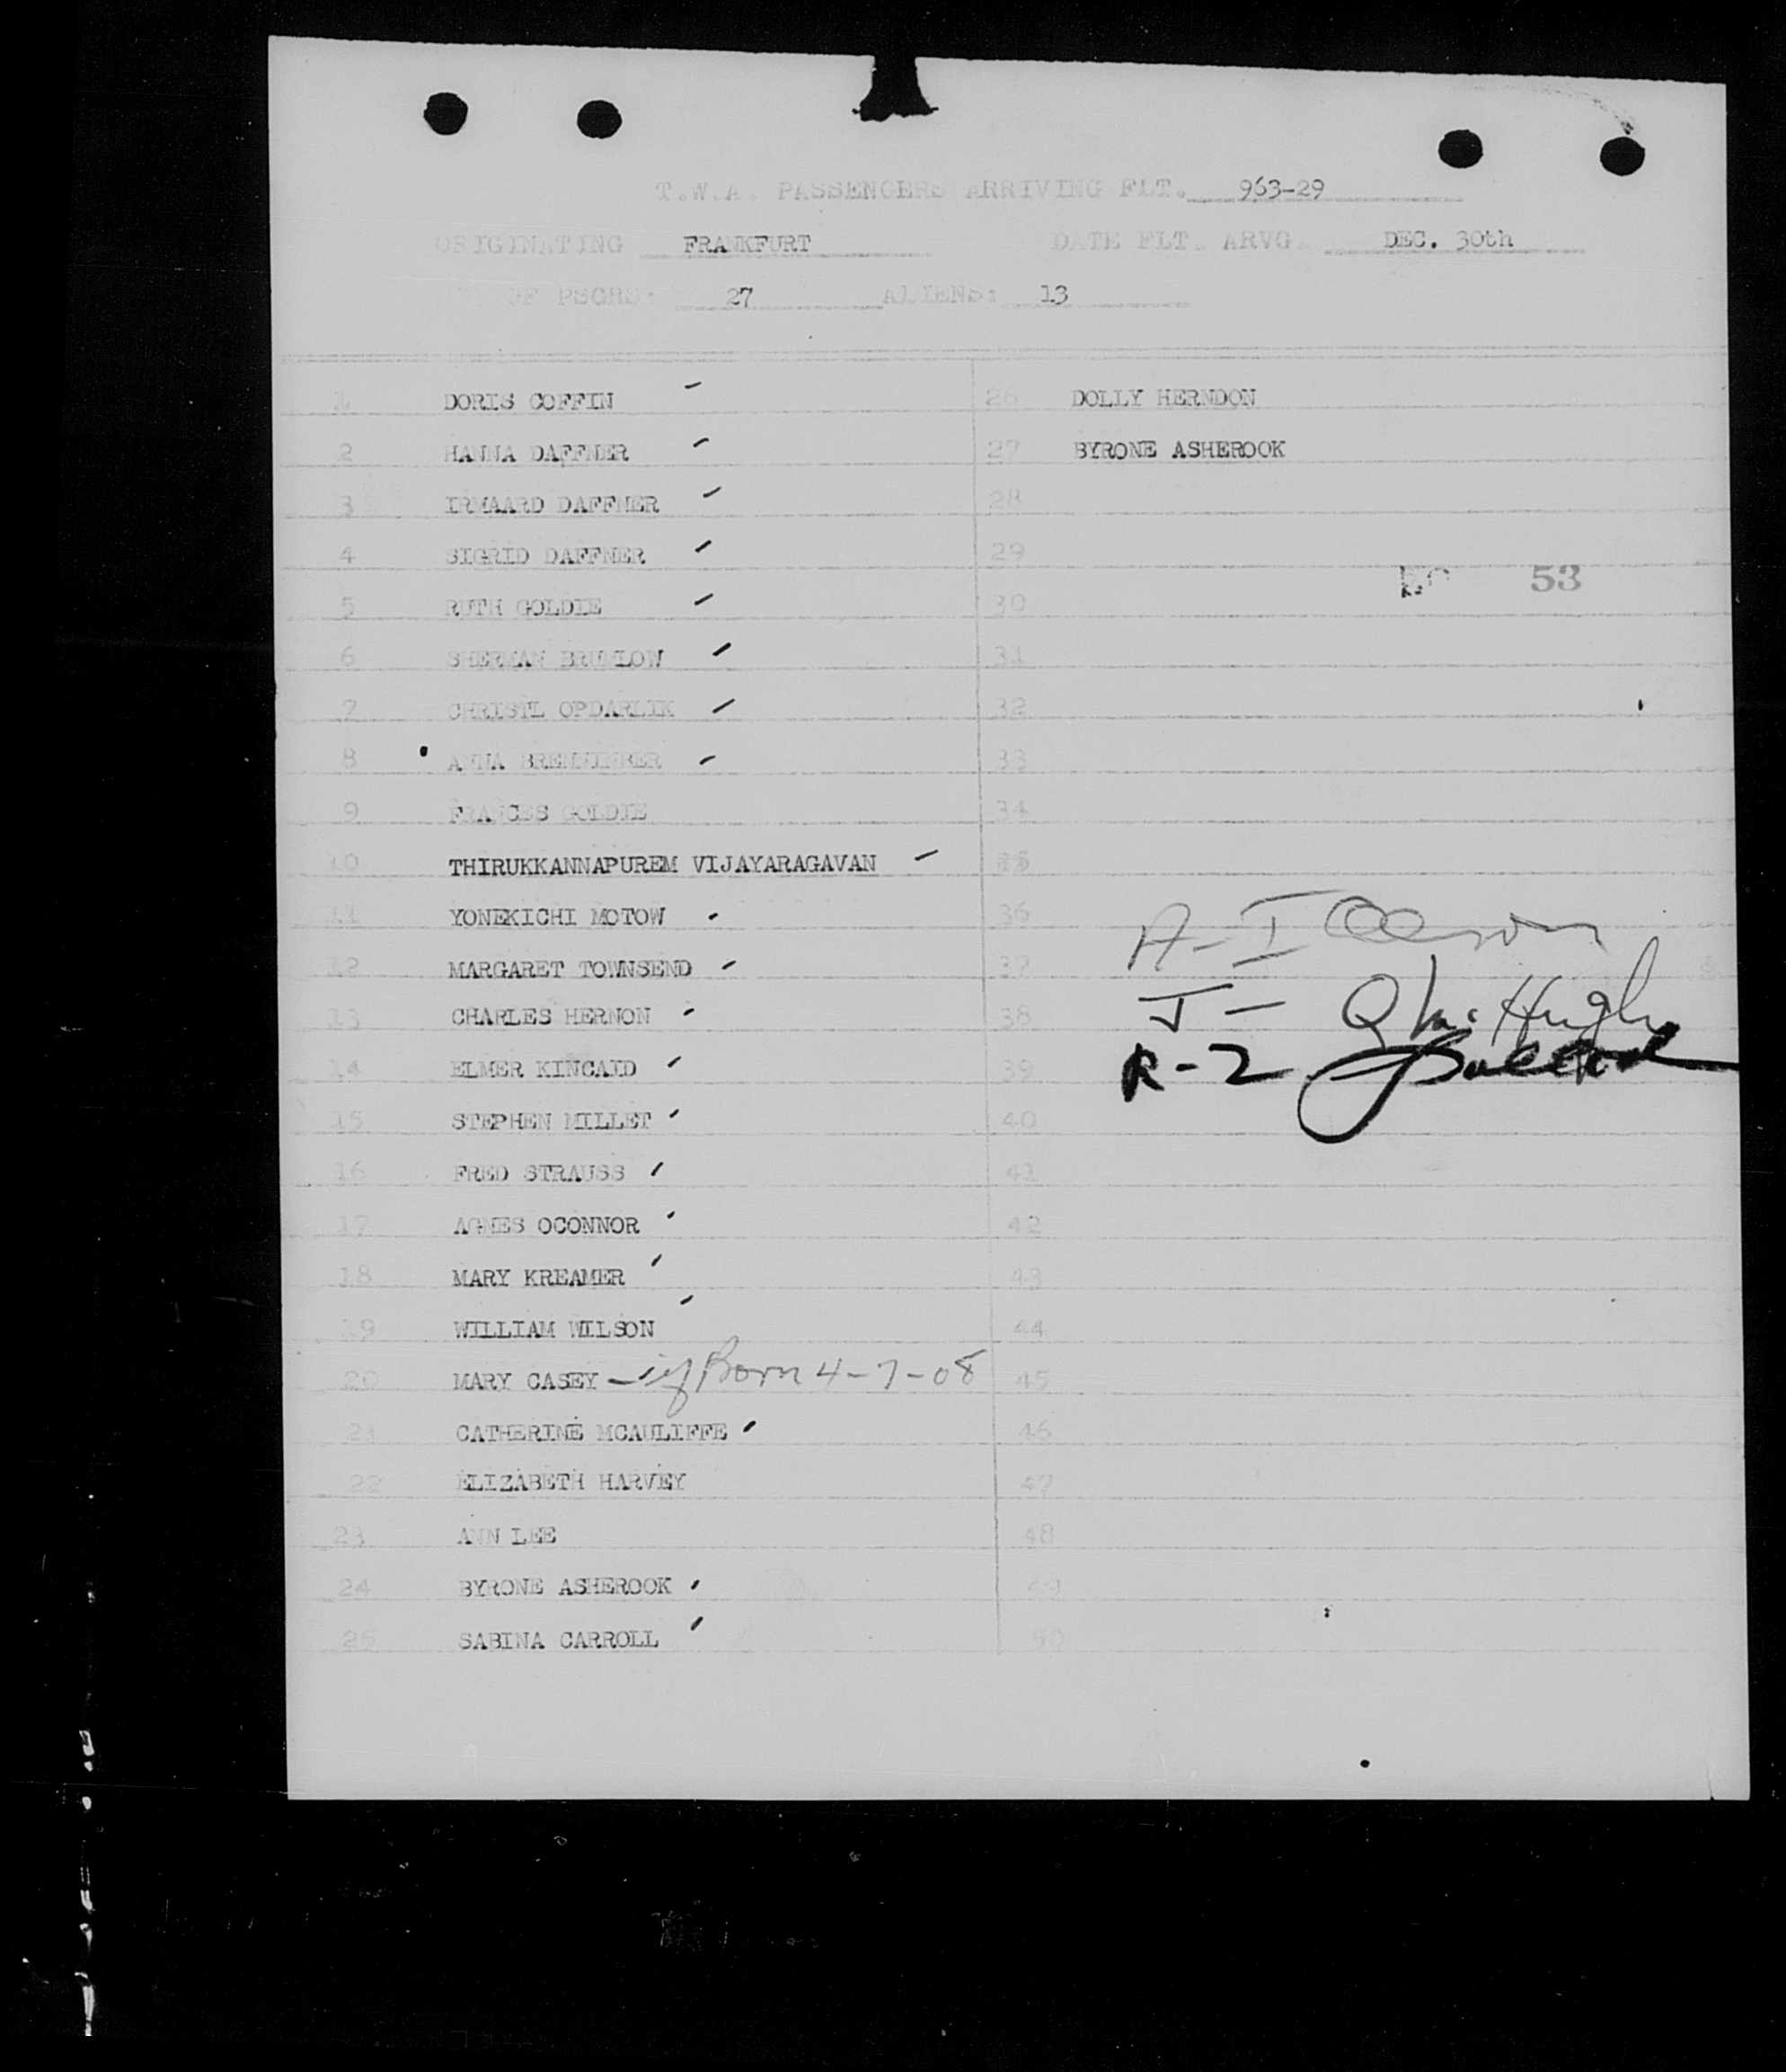 T.W.A. PASSENGERS ARRIVING FLT. 963-29
ORIGINATING FRANKFURT DATE FLT. ARVG. DEC. 30th
OF PSGRS: 27 ALIENS: 13
1 DORIS COFFIN
2 HANNA DAFFNER
3 IRMAARD DAFFNER
4 SIGRID DAFFNER
5 RUTH GOLDIE
6 SHERMAN
7 CHRISTL OPDARLIK
8 ANNA
9 FRANCES GOLDIE
10 THIRUKKANNAPUREM VIJAYARAGAVAN
11 YONEKICHI MOTOW
12 MARGARET TOWNSEND
13 CHARLES HERNON
14 ELMER KINCAID
15 STEPHEN MILLET
16 FRED STRAUSS
17 AGNES OCONNOR
18 MARY KREAMER
19 WILLIAM WILSON
20 MARY CASEY - Born 4-7-08
21 CATHERINE MCAULIFFE
22 ELIZABETH HARVEY
23 ANN LEE
24 BYRONE ASHEROOK
25 SABINA CARROLL
26 DOLLY HERNDON
27 BYRONE ASHEROOK
28
29
53
30
31
32
33
34
35
36
A-I
37
38
J - Q McHugh
39
R-2
40
41
42
43
44
45
46
47
48
49
50